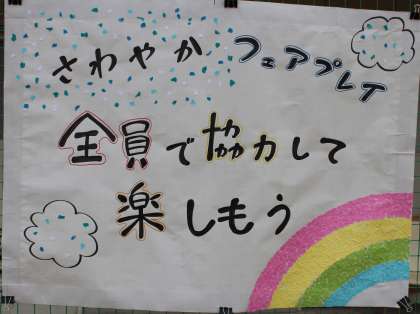 さわやか フェアプレイ
全員で協力して
楽しもう